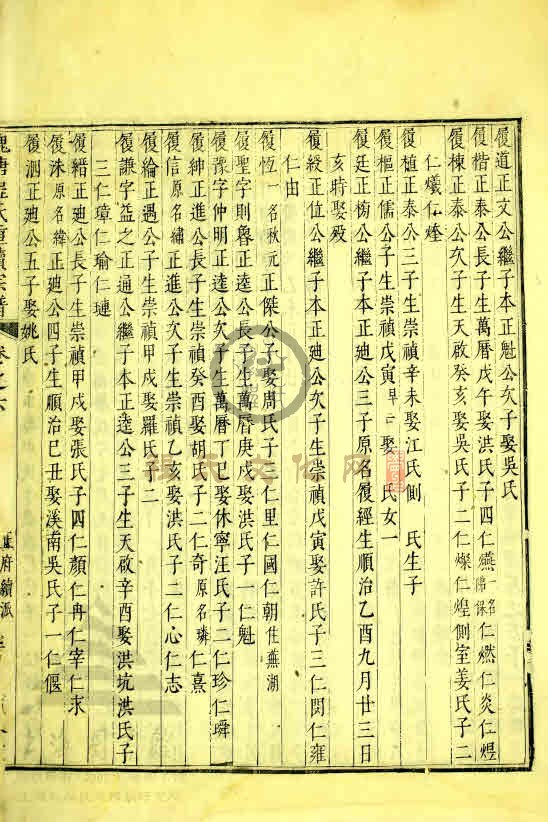 履道正文公繼子本正魁公次子娶吳氏
履楷正泰公長子生萬曆戊午娶洪氏子四仁燕一名佛保仁燃仁炎仁煜
履棟正泰公次子生天啟癸亥娶吳氏子二仁燦仁煌側室姜氏子二
仁爔仁煃
履植正泰公三子生崇禎辛未娶江氏側 氏生子
履樞正儒公子生崇禎戊寅 娶 氏女一
履廷正術公繼子本正廸公三子原名履經生順治乙酉九月廿三日
亥時娶殷
履綬正位公繼子本正廸公次子生崇禎戊寅娶許氏子三仁閔仁雍
仁由
履恆一名秋元正傑公子娶周氏子三仁里仁國仁朝住蕪湖
履聖字則魯正逵公長子生萬曆庚戌娶洪氏子一仁魁
履豫字仲明正逵公次子生萬曆丁巳娶休寧汪氏子二仁珍仁舜
履紳正進公長子生崇禎癸酉娶胡氏子二仁奇原名璘仁熹
履信原名繡正進公次子生崇禎乙亥娶洪氏子二仁心仁志
履綸正遇公子生崇禎甲戌娶羅氏子二
履謙字益之正通公繼子本正逵公三子生天啟辛酉娶洪坑洪氏子
三仁璋仁瑜仁璉
履縉正廸公長子生崇禎甲戌娶張氏子四仁顏仁冉仁宰仁求
履洙原名緯正廸公四子生順治己丑娶溪南吳氏子一仁偃
履泗正廸公五子娶姚氏
槐塘程氏重續宗譜
卷之六
正府續派